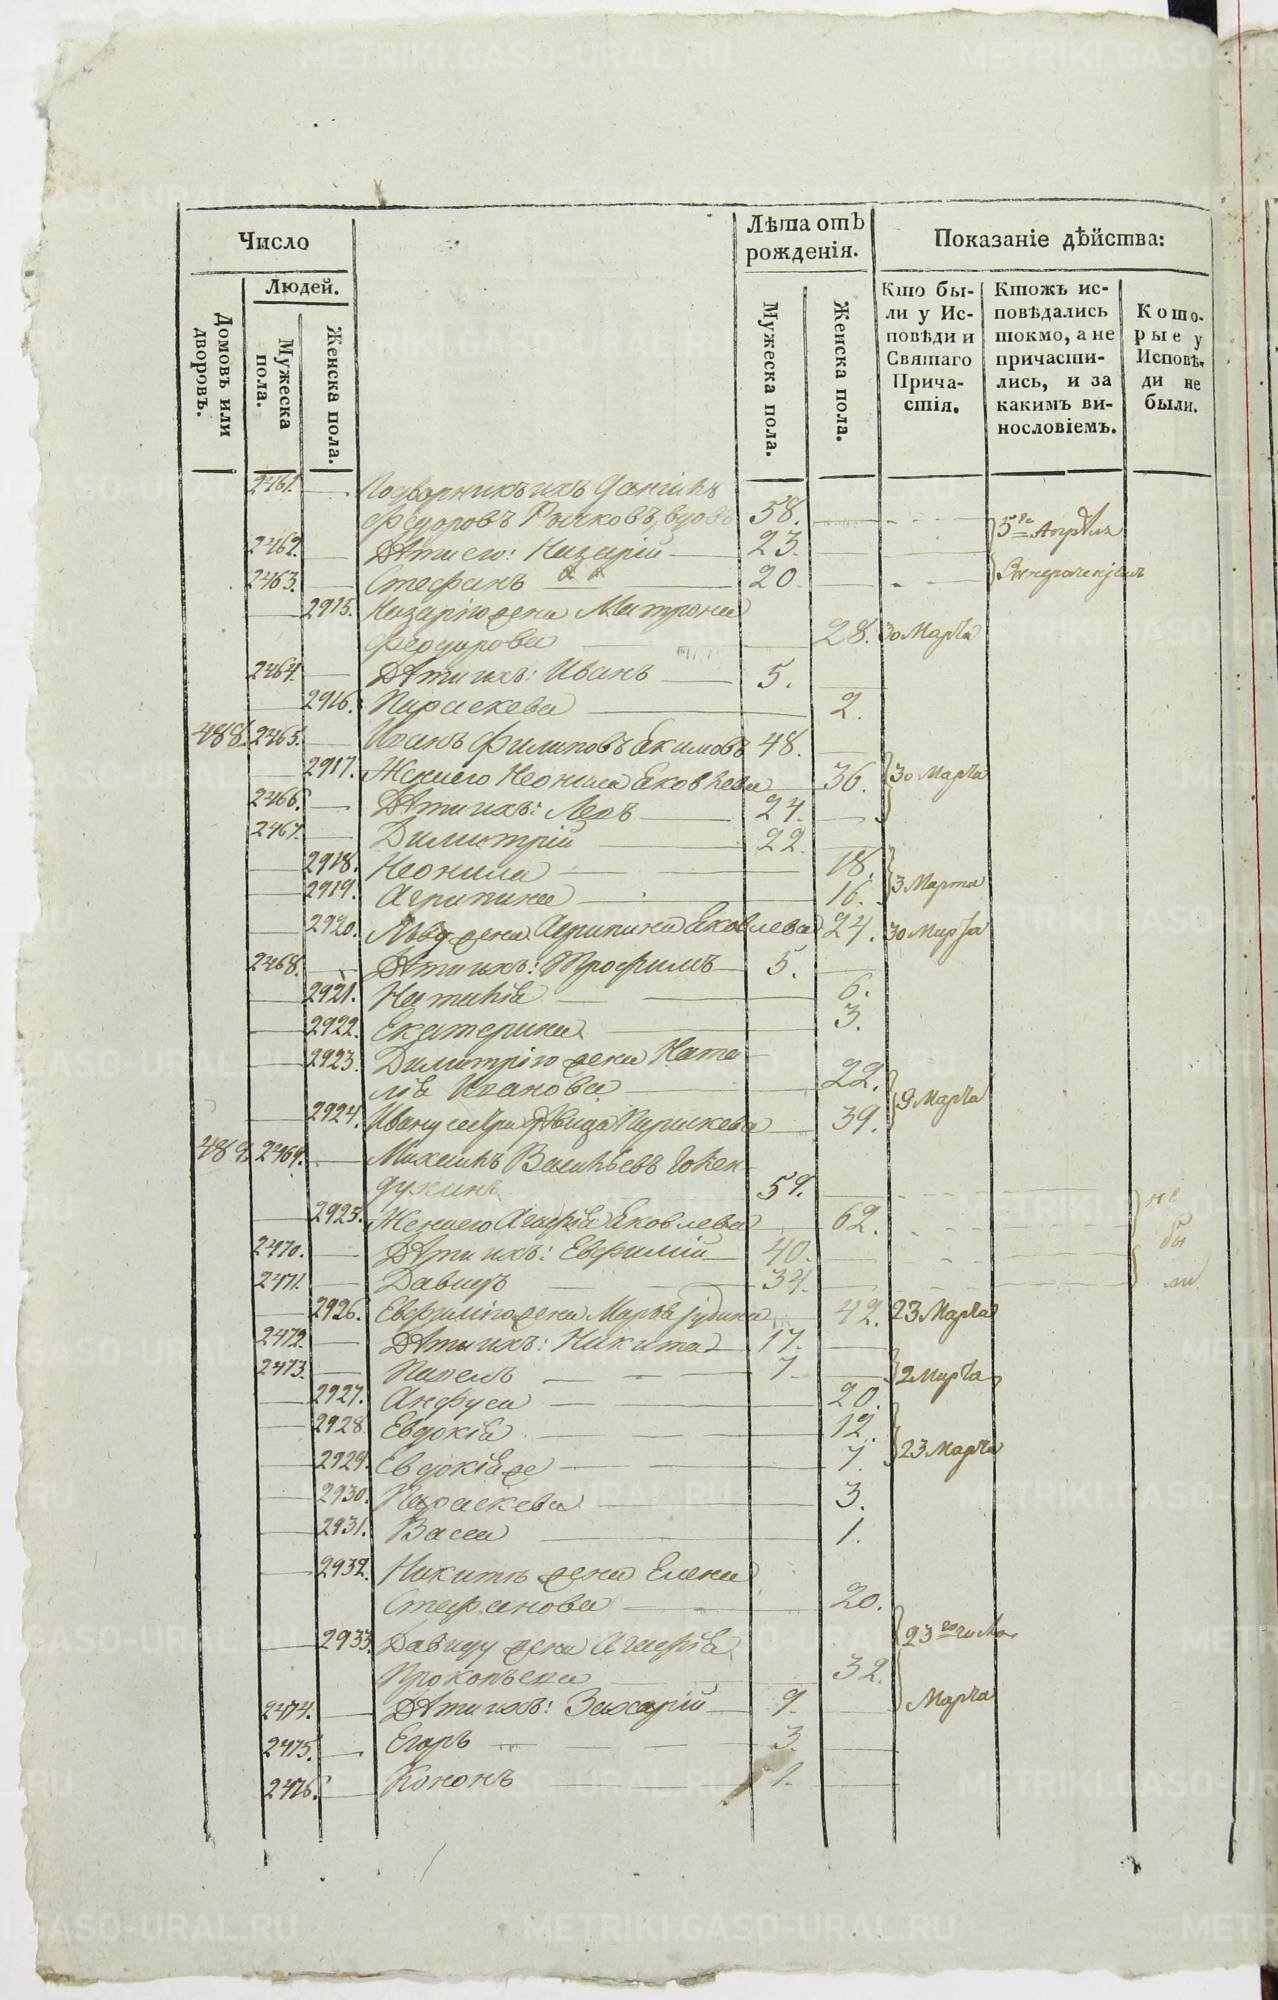 Число
Лѣта отъ рожденія.
Показаніе дѣйства:
Людей.
Домовъ или дворовъ.
Мужеска пола.
Женска пола.
Мужеска пола.
Женска пола.
Кто бы-
ли у Ис-
повѣди и
Святаго
Прича-
стія.
Ктожъ ис-
повѣдались
токмо, а не
причасти-
лись, и за
какимъ ви-
нословіемъ.
Кото-
рые у
Исповѣ-
ди не
были.
2461. Подворникъ ихъ
Федоровъ Рычковъ, вдовъ 58.
2462. Дѣти его: Назарій 23. 5го Апрѣля
2463. Стефанъ 20
2915. Назарію жена Матрона
Феодорова 28. 30 Марта
2464. Дѣти ихъ: Иванъ 5.
2916. Параскева 2.
488. 2465. Иванъ Филиповъ Екимовъ 48.
2917. Жена его Неонила Яковлева 36. 30 Марта
2466. Дѣти ихъ: Левъ 24.
2467. Димитрій 22.
2918. Неонила 18.
2919. Агрипина 16. 3 Марта
2920. Льву жена Агрипина Яковлева 24. 30 Марта
2468. Дѣти ихъ: Трофимъ 5.
2921. Наталія 6.
2922. Екатерина 3.
2923. Димитрію жена Ната-
лія Иванова 22.
2924. Ивану сестра дѣвица Параскева 39. 9 Марта
489. 2469. Михаилъ Васильевъ
59.
2925. Жена его Агафія Яковлева 62. не
2470. Дѣти ихъ: Евфимій 40. бы
2471. Давидъ 34. ли
2926. Евфимію жена Марѳа 42. 23 Марта
2472. Дѣти ихъ: Никита 17.
2473. Павелъ 7. 2 Марта
2927. Анфуса 20.
2928. Евдокія 12.
2929. Евдокія же 7. 23 Марта
2930. Параскева 3.
2931. Васса 1.
2932. Никитѣ жена Елена
Стефанова 20.
2933. Давиду жена Агафія 23
Прокопьева 32.
2474. Дѣти ихъ: Захарій 9. Марта
2475. Егоръ 3.
2476. Кононъ 1.
METRIKI.GASO-URAL.RU